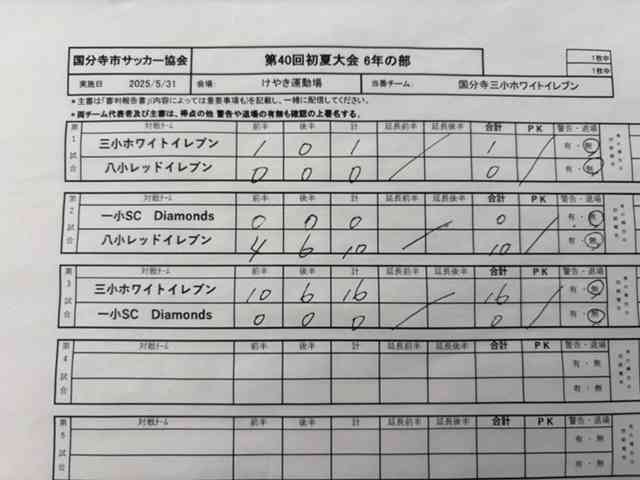 国分寺市サッカー協会 第40回初夏大会 6年の部 1枚中
1枚中
実施日 2025/5/31 会場: けやき運動場 当番チーム: 国分寺三小ホワイトイレブン
*主審は「審判報告書」(内容によっては重要事項も)を記載し、一緒に配信してください。
*両チーム代表者及び主審は、得点の他 警告や退場の有無も確認の上署名する。
第1試合 対戦チーム 前半 後半 計 延長前半 延長後半 合計 PK 警告・退場
三小ホワイトイレブン 1 0 1 1 有・無
八小レッドイレブン 0 0 0 0 有・無
第2試合 対戦チーム 前半 後半 計 延長前半 延長後半 合計 PK 警告・退場
一小SC Diamonds 0 0 0 0 有・無
八小レッドイレブン 4 6 10 10 有・無
第3試合 対戦チーム 前半 後半 計 延長前半 延長後半 合計 PK 警告・退場
三小ホワイトイレブン 10 6 16 16 有・無
一小SC Diamonds 0 0 0 0 有・無
第4試合 対戦チーム 前半 後半 計 延長前半 延長後半 合計 PK 警告・退場
有・無
有・無
第5試合 対戦チーム 前半 後半 計 延長前半 延長後半 合計 PK 警告・退場
有・無
有・無